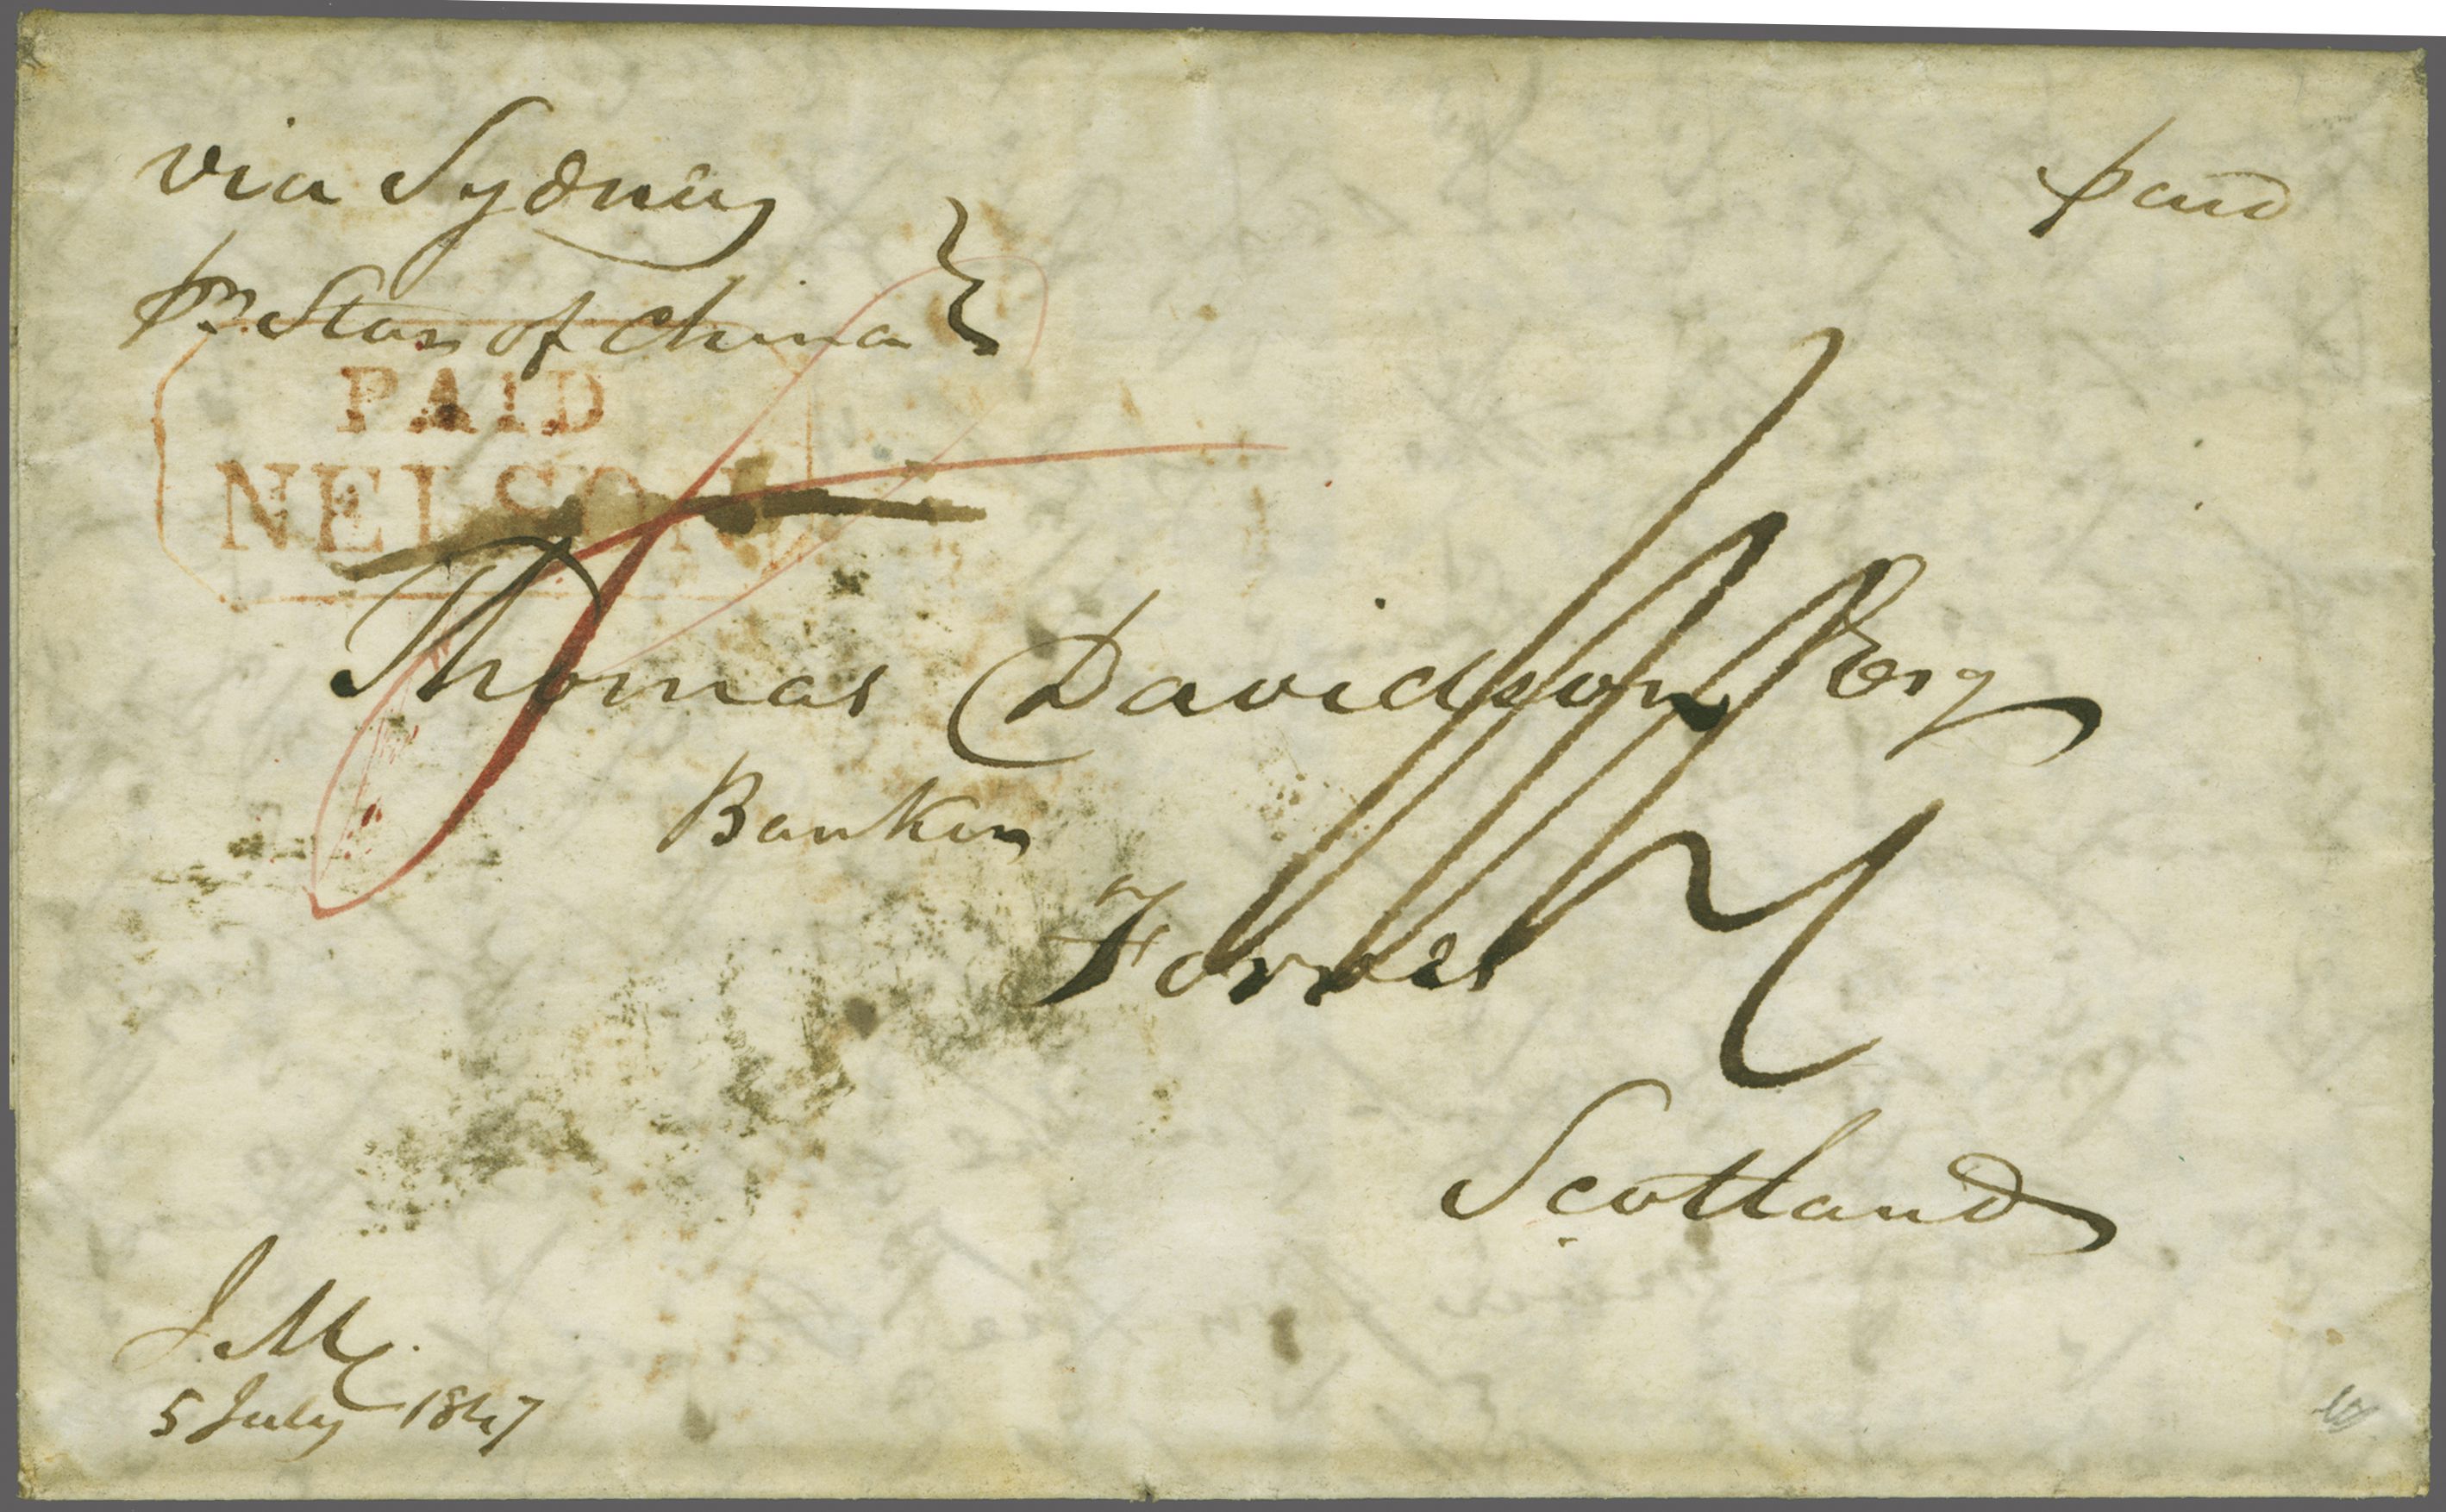 via Sydney
paid
pr Star of China
PAID
NELSON
Thomas Davidson Esq
Banker
Forres
Scotland
J.M.
5 July 1847